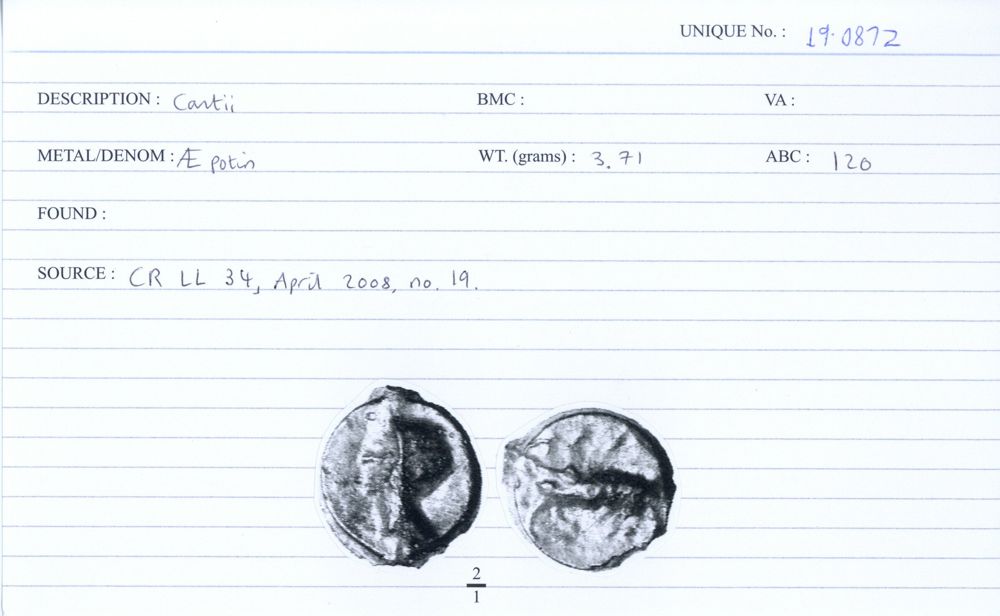 UNIQUE No. : 19.0872
DESCRIPTION : Cantii BMC : VA :
METAL/DENOM : Æ potin WT. (grams) : 3.71 ABC : 120
FOUND :
SOURCE : CR LL 34, April 2008, no. 19.
2
1